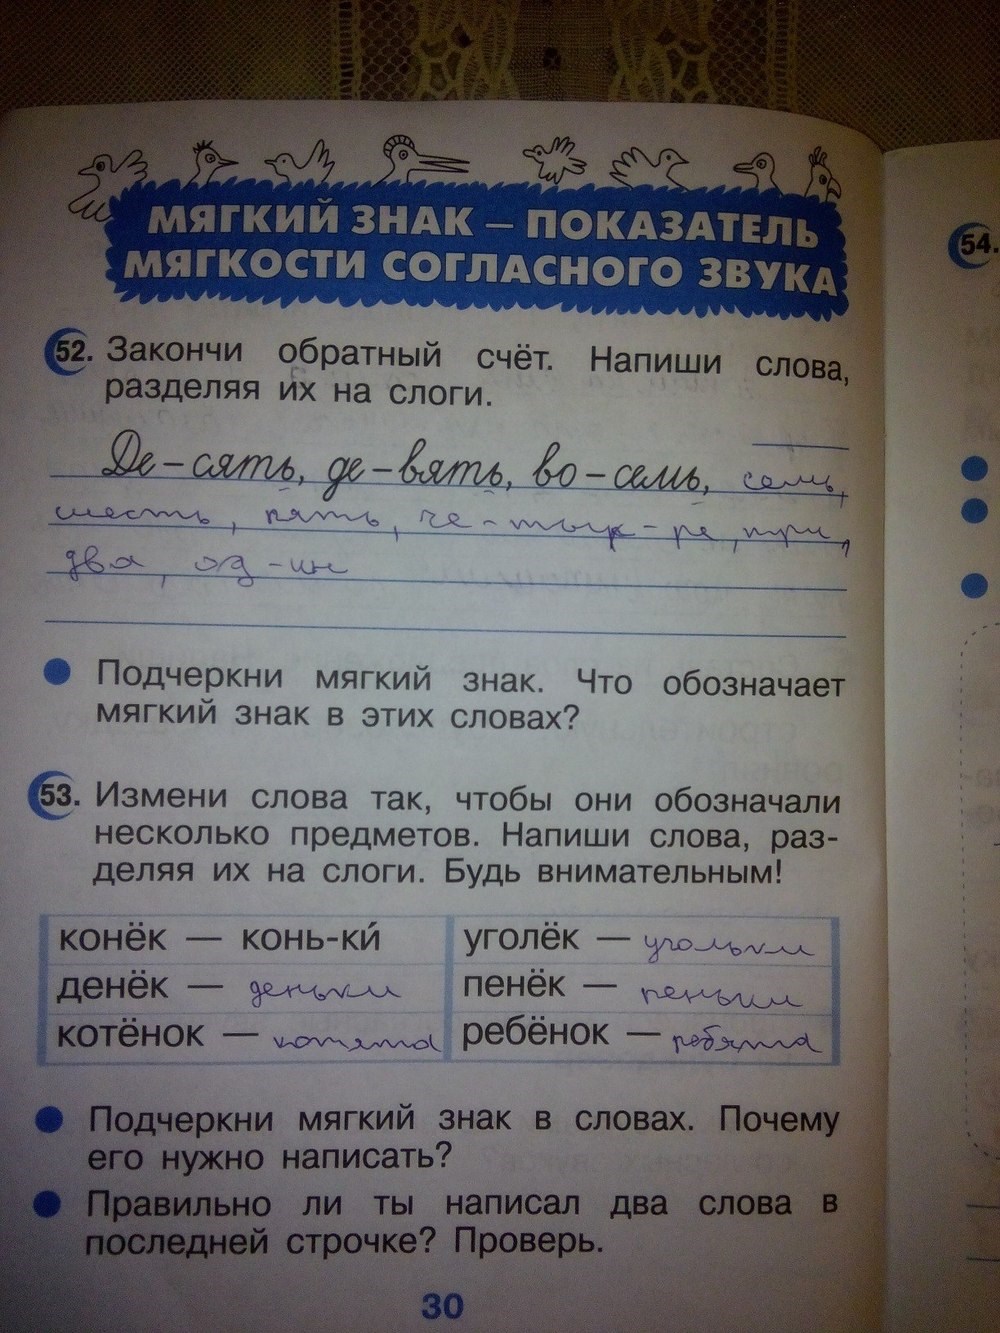 МЯГКИЙ ЗНАК – ПОКАЗАТЕЛЬ
МЯГКОСТИ СОГЛАСНОГО ЗВУКА
52. Закончи обратный счёт. Напиши слова,
разделяя их на слоги.
Де-сять, де-вять, во-семь, семь,
шесть, пять, че-ты-ре, три,
два, од-ин
Подчеркни мягкий знак. Что обозначает
мягкий знак в этих словах?
53. Измени слова так, чтобы они обозначали
несколько предметов. Напиши слова, раз-
деляя их на слоги. Будь внимательным!
конёк — конь-ки́ уголёк — угольки
денёк — деньки пенёк — пеньки
котёнок — котята ребёнок — ребята
Подчеркни мягкий знак в словах. Почему
его нужно написать?
Правильно ли ты написал два слова в
последней строчке? Проверь.
30
54.